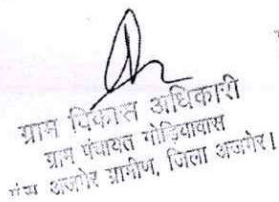 ग्राम विकास अधिकारी
ग्राम पंचायत गोडियावास
पंस अजमेर ग्रामीण, जिला अजमेर।